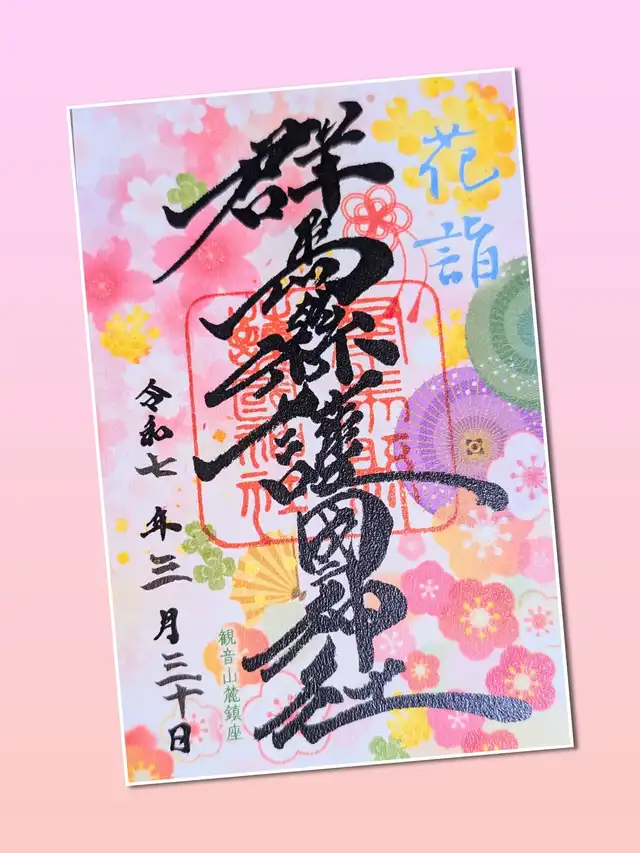 花詣
群馬縣護国神社
観音山麓鎮座
令和七年三月三十日